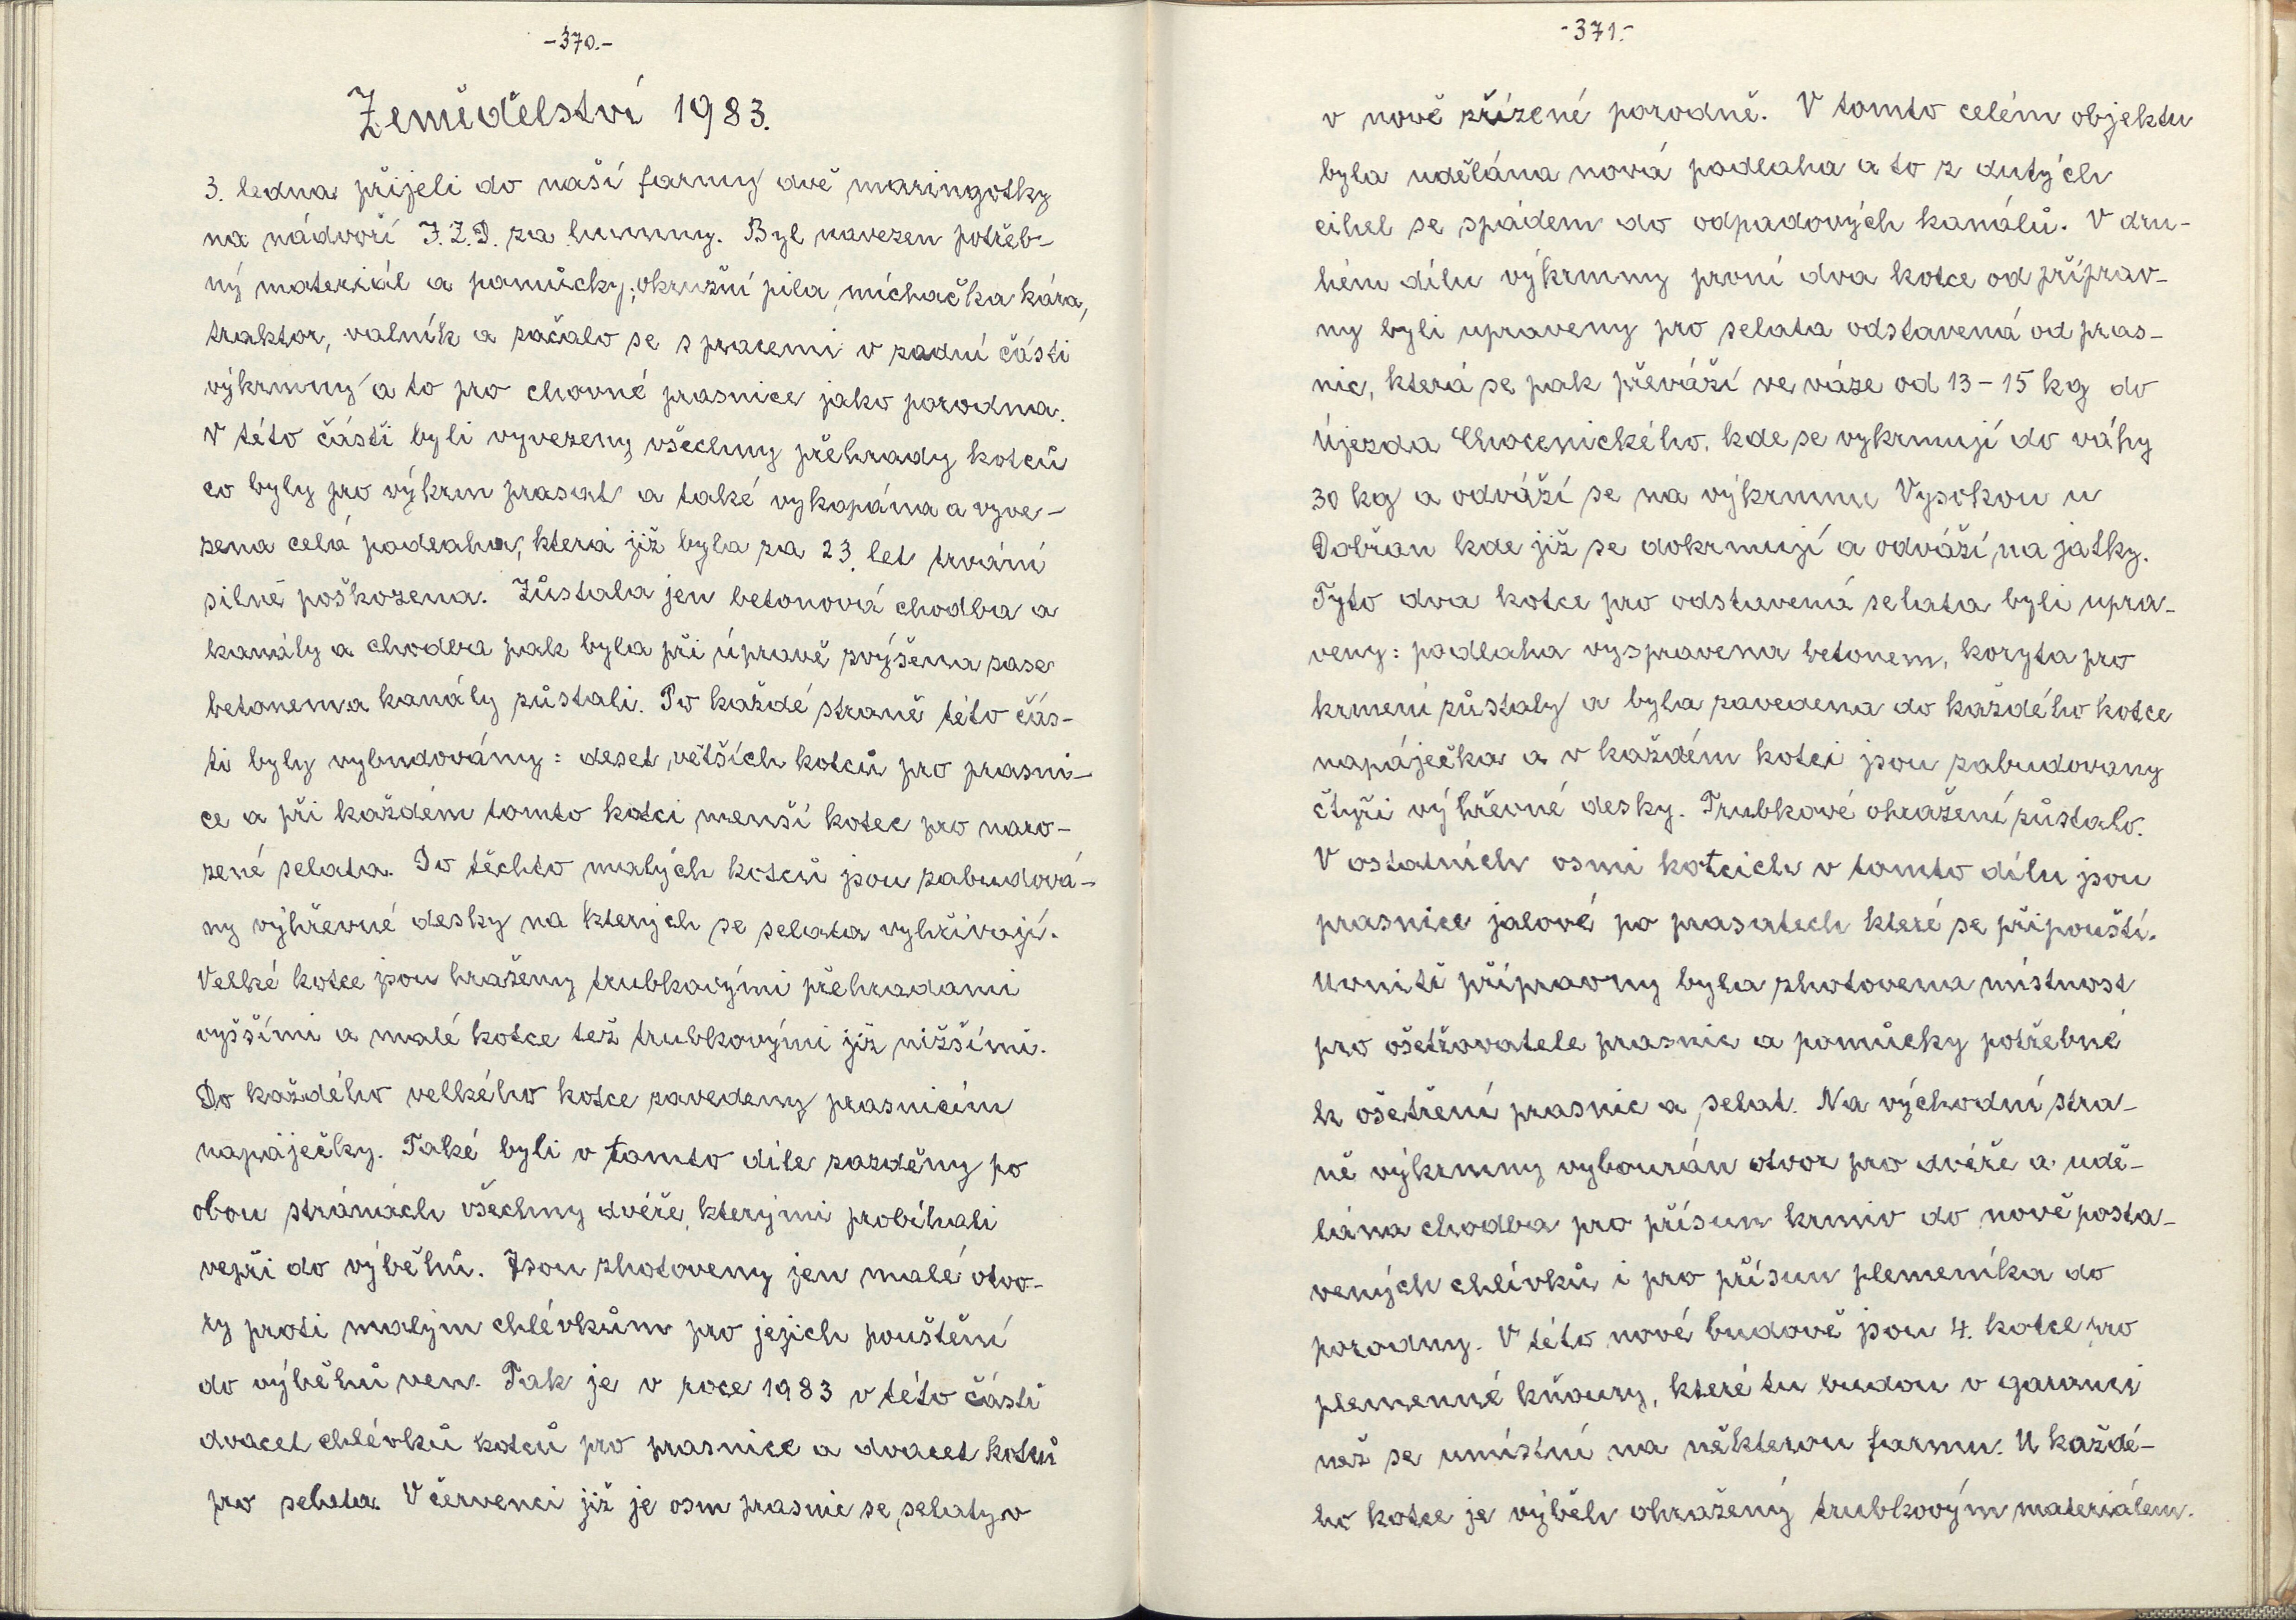 -370.-
Zemědělství 1983.
3. ledna přijeli do naší farmy dvě maringotky
na nádvoří J.Z.D. za humny. Byl navezen potřeb-
ný materiál a pomůcky; okružní pila, míchačka kára,
traktor, valník a začalo se s pracemi v zadní části
výkrmny a to pro chovné prasnice jako porodna.
V této části byli vyvezeny všechny přehrady kotců
co byly pro výkrm prasat a také vykopána a vyve-
zena celá podlaha, která již byla za 23. let trvání
silně poškozena. Zůstala jen betonová chodba a
kanály a chodba pak byla při úpravě zvýšena zase
betonem a kanály zůstali. Po každé straně této čás-
ti byly vybudovány: deset větších kotců pro prasni-
ce a při každém tomto kotci menší kotec pro naro-
zené selata. Do těchto malých kotců jsou zabudová-
ny výhřevné desky na kterých se selata vyhřívají.
Velké kotce jsou hraženy trubkovými přehradami
vyššími a malé kotce též trubkovými již nižšími.
Do každého velkého kotce zavedeny prasnicím
napáječky. Také byli v tomto díle zazděny po
obou stránách všechny dvéře, kterými probíhali
vepři do výběhů. Jsou zhotoveny jen malé otvo-
ry proti malým chlévkům pro jejich pouštění
do výběhů ven. Tak je v roce 1983 v této části
dvacet chlévků kotců pro prasnice a dvacet kotců
pro selata. V červenci již je osm prasnic se selaty v
-371.-
v nově zřízené porodně. V tomto celém objektu
byla udělána nová podlaha a to z dutých
cihel se spádem do odpadových kanálů. V dru-
hém dílu výkrmny první dva kotce od příprav-
ny byli upraveny pro selata odstavená od pras-
nic, která se pak převáží ve váze od 13-15 kg do
Újezda Chocenického, kde se vykrmují do váhy
30 kg a odváží se na výkrmnu Vysokou u
Dobřan kde již se dokrmují a odváží na jatky.
Tyto dva kotce pro odstavená selata byli upra-
veny: podlaha vyspravena betonem, koryta pro
krmení zůstaly a byla zavedena do každého kotce
napáječka a v každém kotci jsou zabudovany
čtyři výhřevné desky. Trubkové ohražení zůstalo.
V ostatních osmi kotcich v tomto dílu jsou
prasnice jalové po prasatech které se připouští.
Uvnitř přípravny byla zhotovena místnost
pro ošetřovatele prasnic a pomůcky potřebné
k ošetření prasnic a selat. Na východní stra-
ně výkrmny vybourán otvor pro dvéře a udě-
lána chodba pro přísun krmiv do nově posta-
vených chlívků i pro přísun plemeníka do
porodny. V této nové budově jsou 4. kotce pro
plemenné kňoury, které tu budou v garanci
než se umístní na některou farmu. U každé-
ho kotce je výběh ohražený trubkovým materiálem.